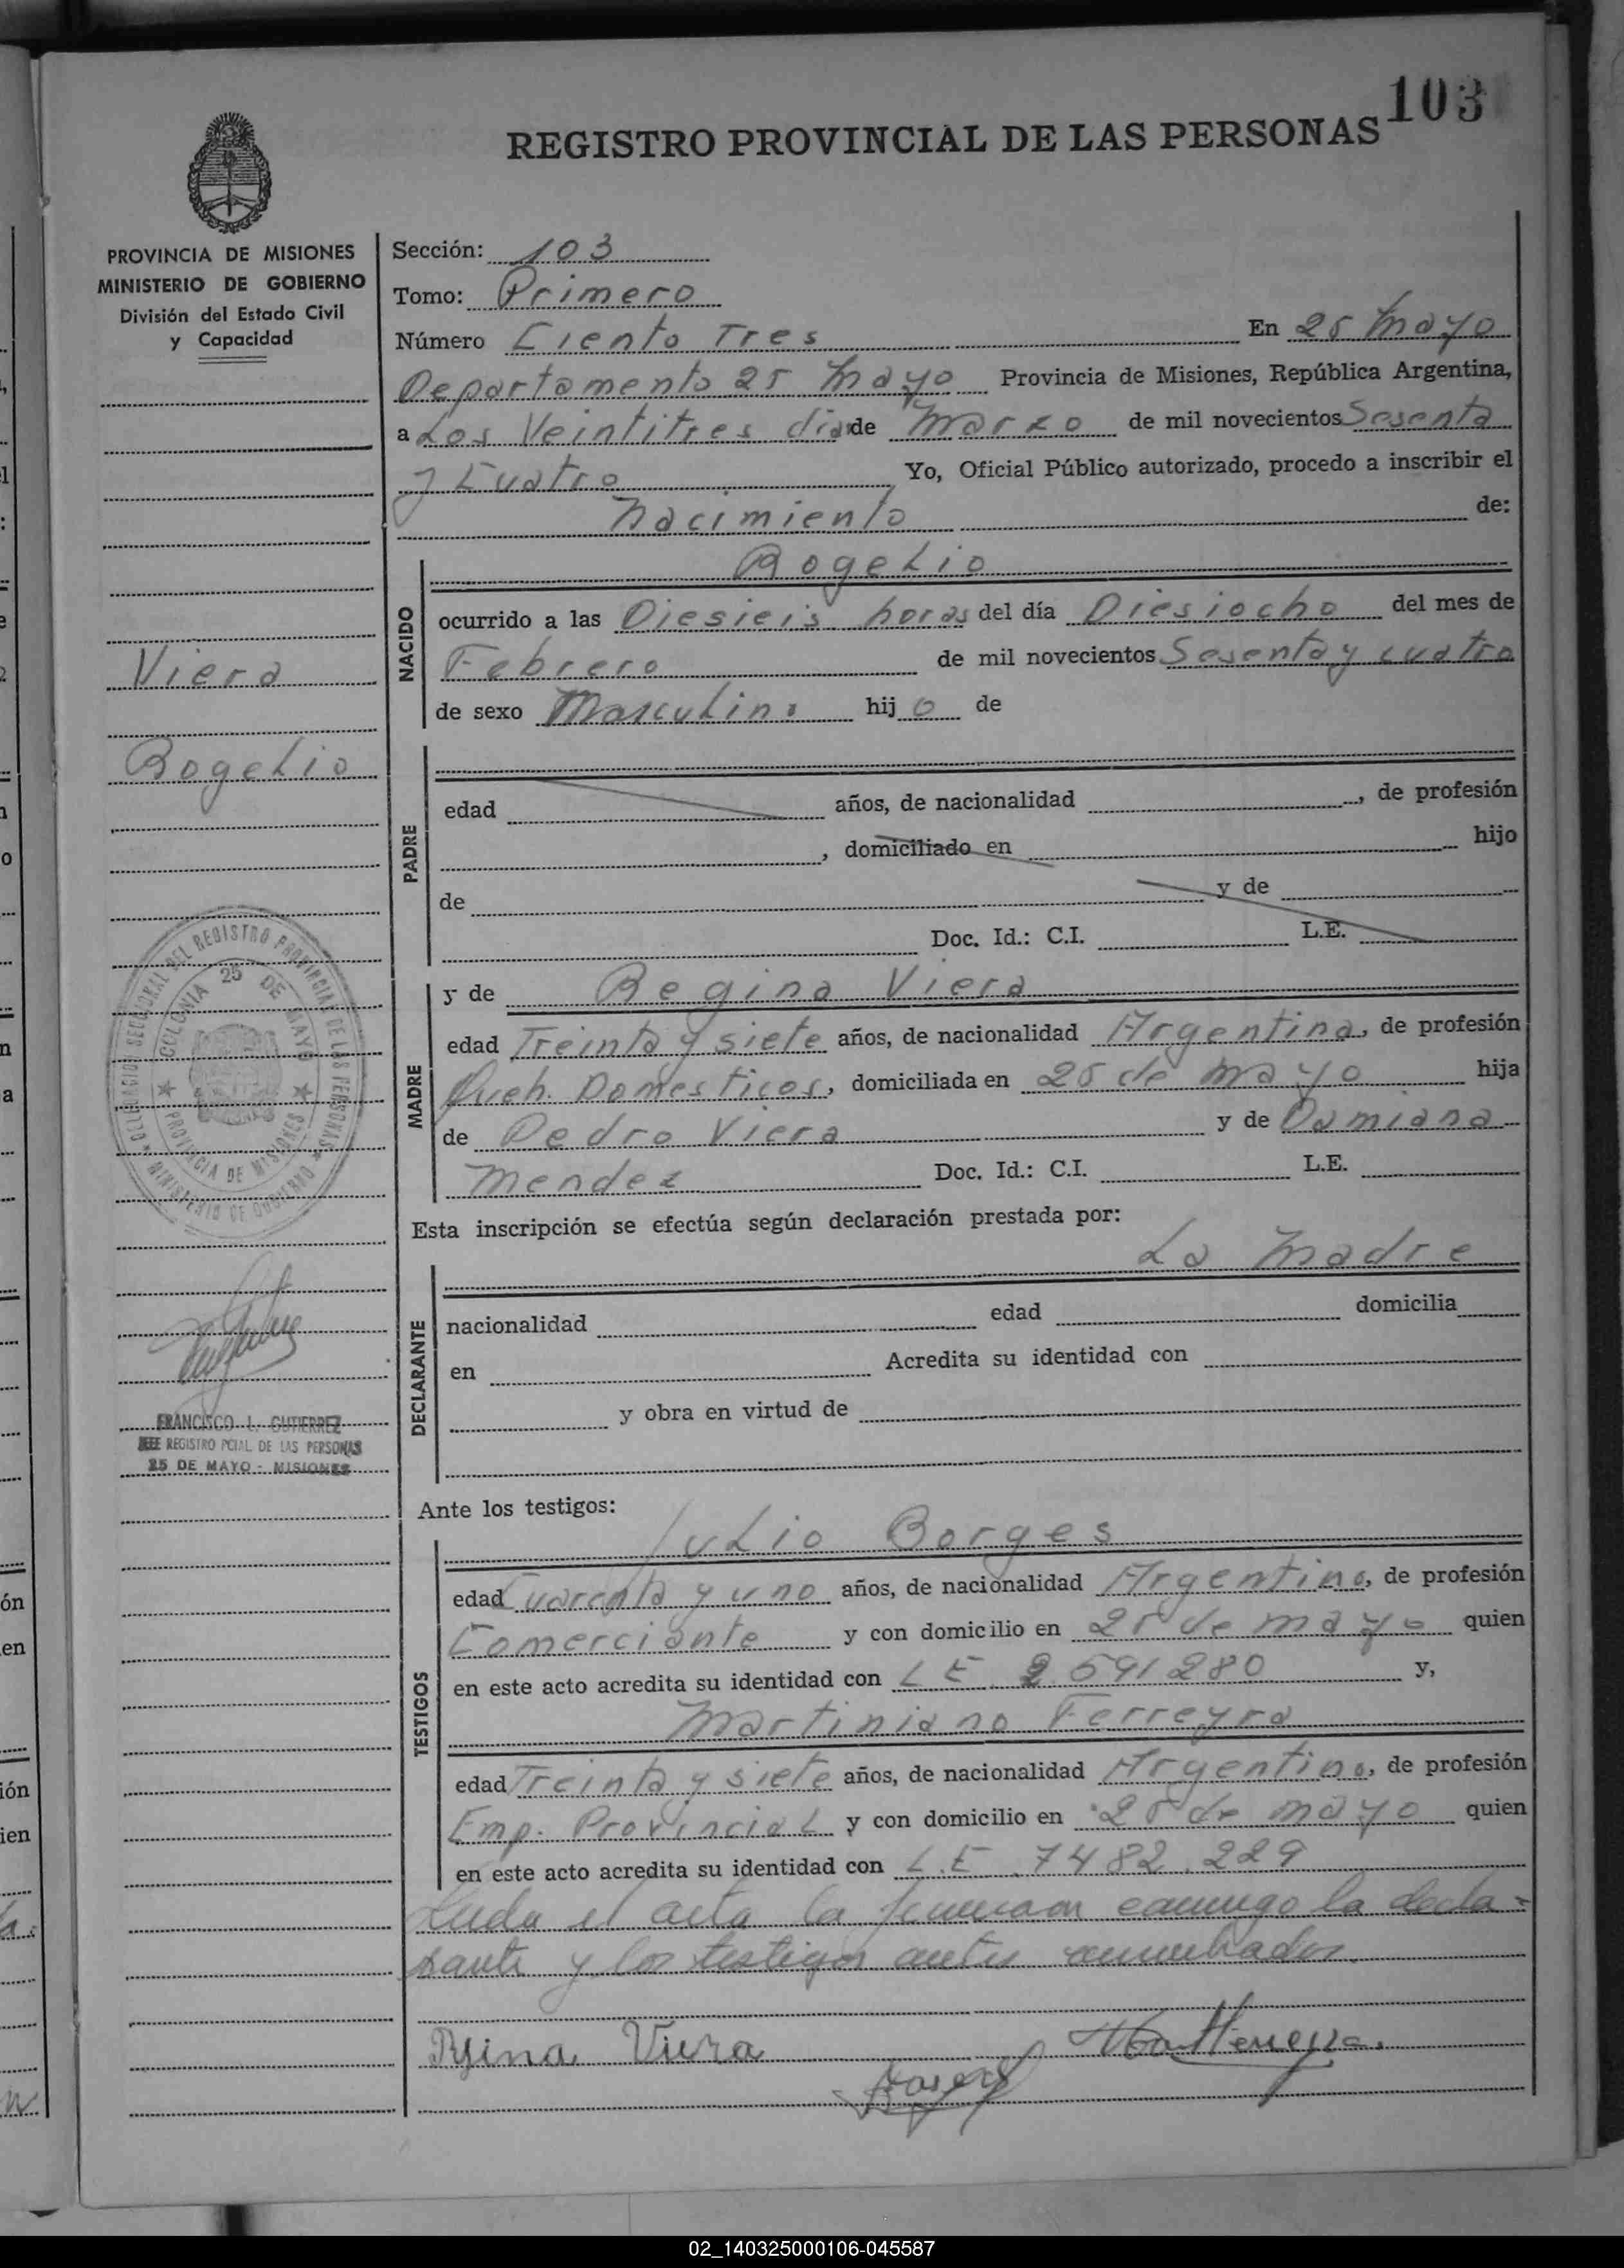 103
REGISTRO PROVINCIAL DE LAS PERSONAS
PROVINCIA DE MISIONES
MINISTERIO DE GOBIERNO
División del Estado Civil
y Capacidad
Viera
Rogelio
DELEGACION SECCIONAL DEL REGISTRO PROVINCIAL DE LAS PERSONAS
MINISTERIO DE GOBIERNO
COLONIA 25 DE MAYO
PROVINCIA DE MISIONES
FRANCISCO L. GUTIERREZ
JEFE REGISTRO PCIAL. DE LAS PERSONAS
25 DE MAYO - MISIONES
Sección: 103
Tomo: Primero
Número Ciento Tres En 25 Mayo
Departamento 25 Mayo Provincia de Misiones, República Argentina,
a Los Veintitres dias de Marzo de mil novecientos Sesenta
y Cuatro Yo, Oficial Público autorizado, procedo a inscribir el
Nacimiento de:
NACIDO
Rogelio
ocurrido a las Diesieis horas del día Diesiocho del mes de
Febrero de mil novecientos Sesenta y cuatro
de sexo Masculino hijo de
PADRE
edad años, de nacionalidad , de profesión
, domiciliado en hijo
de y de
Doc. Id.: C.I. L.E.
MADRE
y de Regina Viera
edad Treinta y siete años, de nacionalidad Argentina, de profesión
Queh. Domesticos, domiciliada en 25 de Mayo hija
de Pedro Viera y de Damiana
Mendez Doc. Id.: C.I. L.E.
Esta inscripción se efectúa según declaración prestada por:
La Madre
DECLARANTE
nacionalidad edad domicilia
en Acredita su identidad con
y obra en virtud de
Ante los testigos:
TESTIGOS
Julio Borges
edad Cuarenta y uno años, de nacionalidad Argentino, de profesión
Comerciante y con domicilio en 25 de Mayo quien
en este acto acredita su identidad con L E 2.591280 y,
Martiniano Ferreyra
edad Treinta y siete años, de nacionalidad Argentino, de profesión
Emp. Provincial y con domicilio en 25 de Mayo quien
en este acto acredita su identidad con L.E. 7482.229
Leida el acta la firmaron conmigo la decla-
rante y los testigos antes
Rgina Viera
02_140325000106-045587